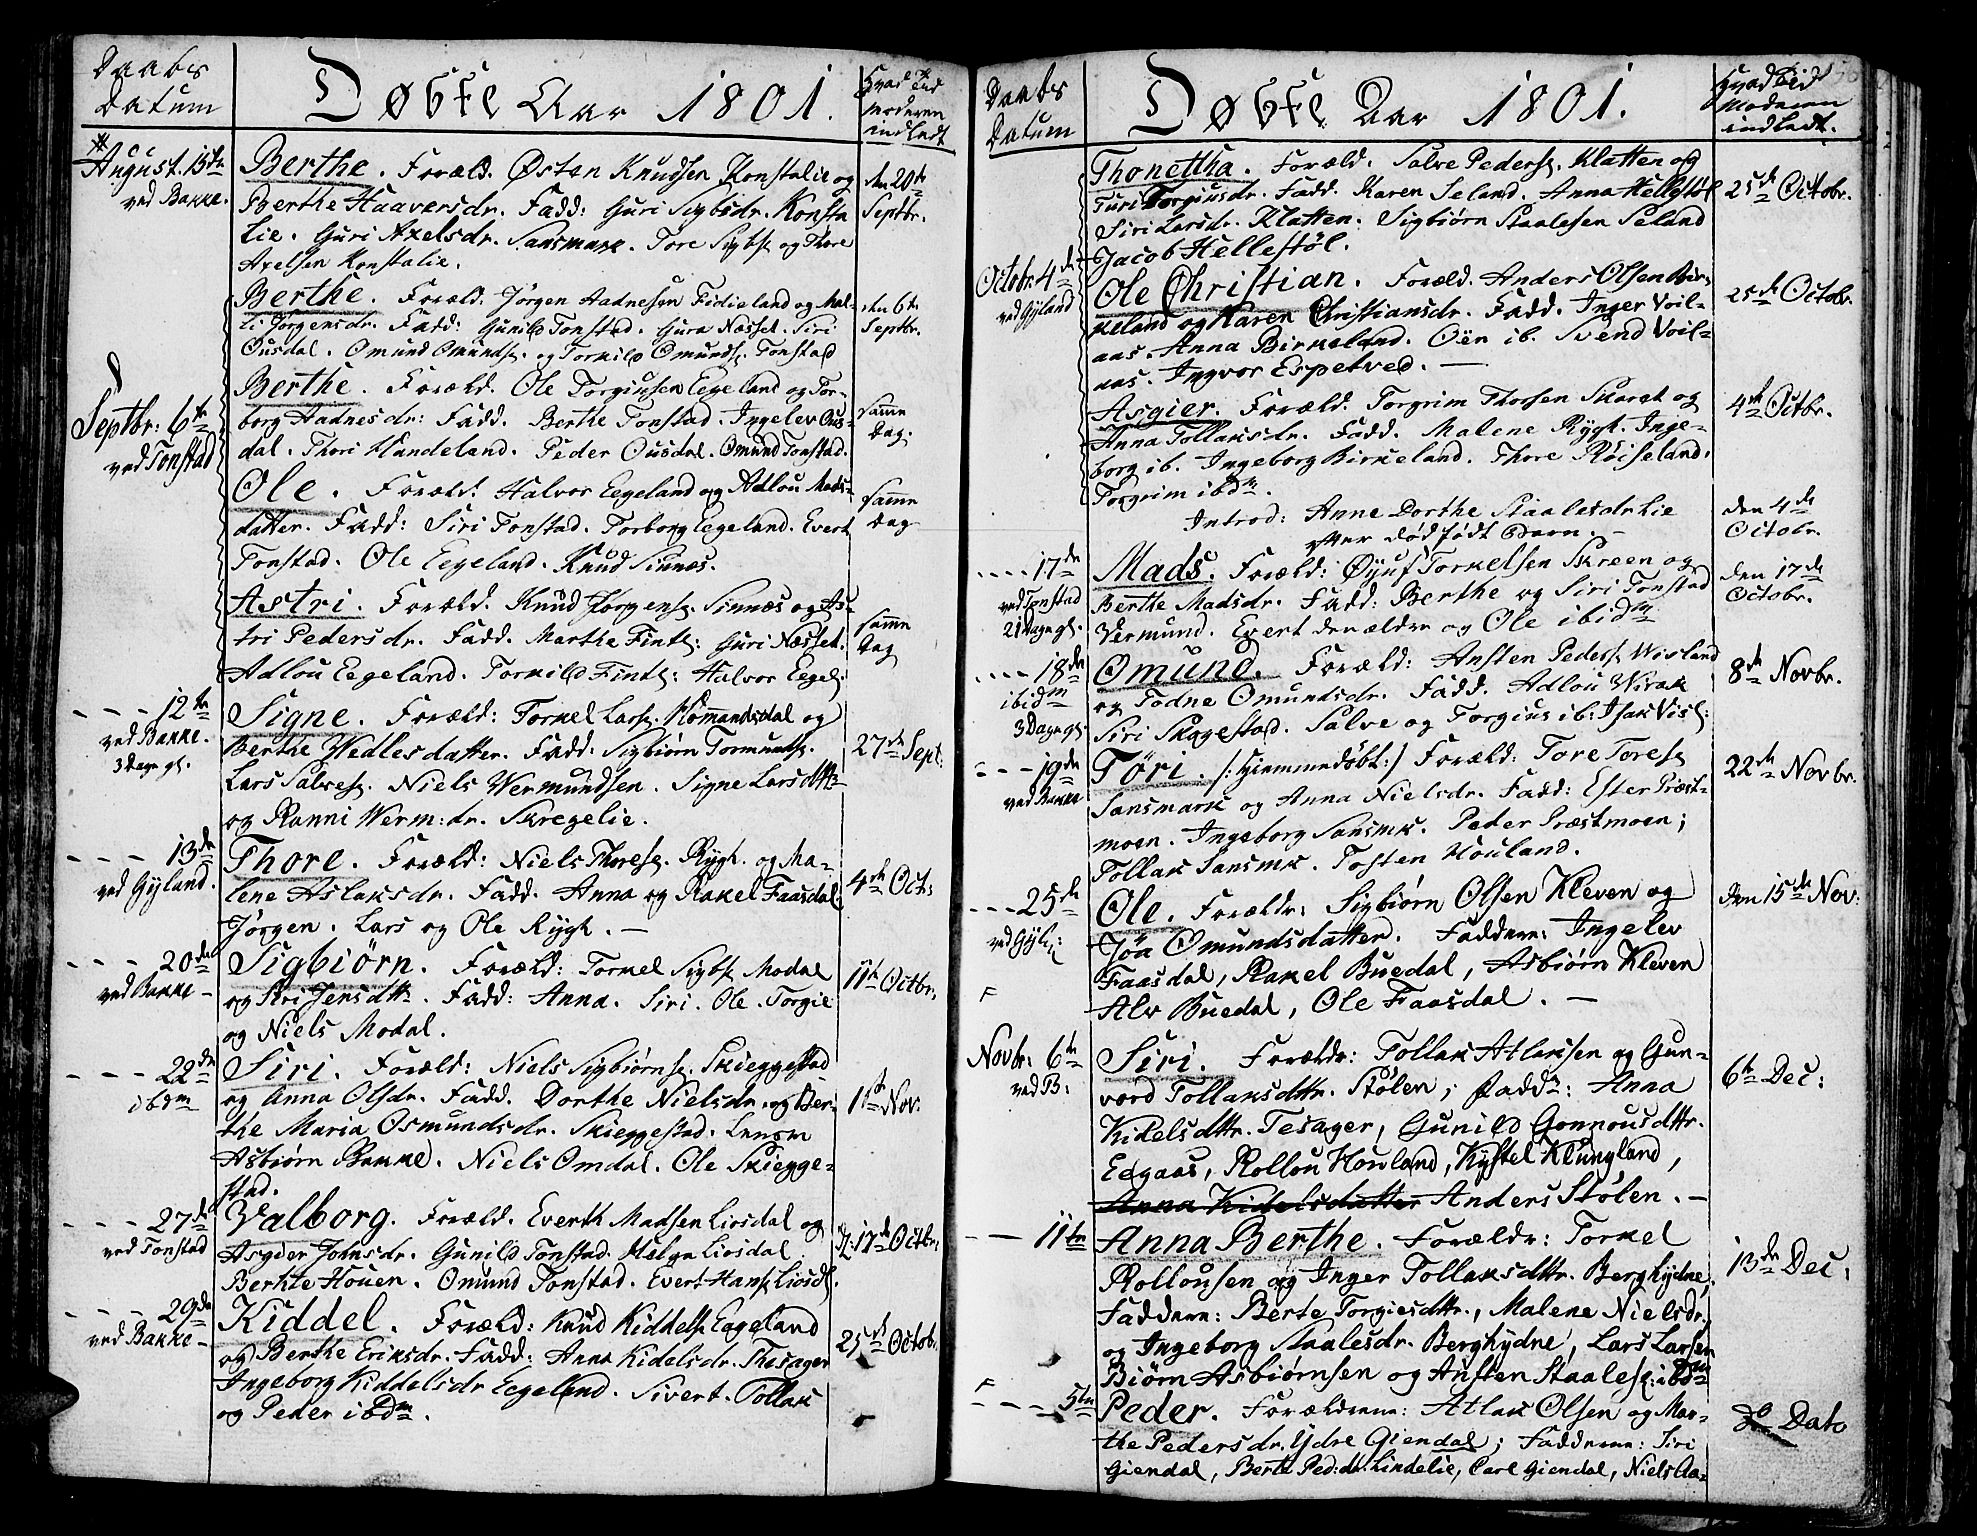 Daabs
Datum
Døbte Aar 1801.
Hvad Tid
Moderen
indledt
August. 15de
ved Bakke.
Berthe. Foræld. Østen Knudsen Konstalie og
Berthe Haaversdr. Fadd: Guri Sigbsdr. Konsta
lie. Guri Axelsdr. Sansmark. Tore Sigbs. og Thore
Axelsen Konstalie.
den 20de
Septbr.
Berthe. Foræld: Jørgen Aadnesen Fidieland og Mal-
li Jørgensdr. Fadd: Gunild Tonstad. Gura Nesset. Siri
Ousdal. Omund Omunds. og Torkild Omunds. Tonstad
den 6te
Septbr.
Septbr: 6te
ved Tonstad
Berthe. Foræld. Ole Torgiusen Eegeland og Tor-
borg Aadnesdr: Fadd. Berthe Tonstad. Ingelev Ous-
dal. Thori Handeland. Peder Ousdal. Omund Tonstad.
samme
Dag.
Ole. Foræld: Halvor Eegeland og Adlou Mads-
datter. Fadd: Siri Tonstad. Torborg Eegeland. Evert
Tonstad. Ole Eegeland. Knud Sinnes.
samme
Dag
Astri. Foræld. Knud Jørgens. Sinnes og As-
tri Pedersdr. Fadd. Marthe Fintl: Guri Nesset.
Adlou Eegeland. Torkild Fintl: Halvor Eegel.
samme
Dag
- - - - 12te
ved Bakke.
3 Dage gl.
Signe. Foræld: Torkel Lars. Homandsdal og
Berthe Wedlesdatter. Fadd: Sigbiørn Tormunds.
Lars Salves. Niels Wermundsen. Signe Larsdttr
og Ranni Werm:dr. Skregelie.
27de Sept.
- - - - 13de
ved Gyland.
Thore. Foræld: Niels Thores. Rygh. og Ma-
lene Aslaksdr. Fadd. Anna og Rakel Faasdal.
Jørgen. Lars og Ole Rygh. —
4de Oct:
- - - 20de
ved Bakke -
Sigbiørn. Foræld: Torkel Sigbs. Modal
og Siri Jensdtr. Fadd: Anna. Siri. Ole. Torgie
og Niels Modal.
11te Octbr.
- - - - 22de
ibdm
Siri. Foræld: Niels Sigbiørns. Skieggestad
og Anna Olsdr. Fadd. Dorthe Nielsdr. og Ber-
the Maria Osmundsdr. Skieggestad. Lensm
Asbiørn Bakke. Niels Omdal. Ole Skiegge-
stad.
1ste Nov:
- - - - 27de
ved Tonstad
Valborg. Foræld. Everth Madsen Liosdal og
Asgier Johnsdr. Gunild Tonstad. Helge Liosdal
Berhte Houen. Omund Tonstad. Evert Hans. Liosdl.
17de Octbr:
- - - - 29de
ved Bakke -
Kiddel. Foræld: Knud Kiddels. Eegeland
og Berthe Eriksdr. Fadd: Anna Kidelsdr. Thesager
Ingeborg Kiddelsdr Eegeland. Sivert. Tollak
og Peder ibdm.
25de Octob:
Daabs
Datum
Døbte Aar 1801.
Hvad Tid
Moderen
indledt.
Thonettha. Foræld. Salve Peders. Klatten og
Turi Torgiusdr. Fadd. Karen Seland. Anna Hellestøl
Siri Larsdr. Klatten. Sigbiørn Staalesen Seland
Jacob Hellestøl.
25de Octobr.
Octobr. 4de
ved Gyland
Ole Christian. Foræld. Anders Olsen Bir-
keland og Karen Christiansdr. Fadd. Inger Voil-
aas. Anna Birkeland. Oen ib. Svend Voil-
aas. Ingvor Espetved. —
25de Octobr.
Asgier. Foræld. Torgrim Thorsen Skaret og
Anna Tollaksdr. Fadd. Malene Rygh. Inge-
borg ib. Ingeborg Birkeland. Thore Røiseland.
Torgrim ibdm.
4de Octbr.
Introd: Anne Dorthe Staalesdr Lie
efter dødfødt Barn. -
den 4de
Octobr.
- - - - 17de
ved Tonstad
21 Dage gl.
Mads. Foræld: Øyuf Torkelsen Skreen og
Berthe Madsdr. Fadd: Berthe og Siri Tonstad
Vermund. Evert den ældre og Ole ibidm
den 17de
Octobr.
- - - - 18de
ibidm
3 Dage gl.
Omund. Foræld: Ansten Peders. Wisland
og Todne Omundsdr. Fadd. Adlou Wirak
Siri Skagestad. Salve og Torgius ib: Isak Visl:
8de Novbr.
- - - 19de
ved Bakke
Tøri. /: hiemmedøbt :/ Foræld: Tore Tores.
Sansmark og Anna Nielsdr. Fadd: Ester Præst-
moen. Ingeborg Sansmk. Peder Præstmoen;
Tollak Sansmk. Tosten Houland.
22de Novbr.
- - - 25de
ved Gyl:
Ole. Forældr: Sigbiørn Olsen Kleven og
Jøa Omundsdatter. Faddere: Ingelev
Faasdal, Rakel Buedal, Asbiørn Kleven
Alv Buedal, Ole Faasdal. —
den 15de Nov:
F
Novbr: 6te
ved B:
Siri. Forældr: Tollak Atlaksen og Gun-
vord Tollaksdttr. Stølen; Faddr: Anna
Kidelsdttr. Tesager, Gunild Gonnousdttr.
Eegaas, Rollou Houland, Kystel Klungland,
Anna Kidelsdatter Anders Stølen. -
6te Dec:
- - 11te
Anna Berthe. Forældr: Torkel
Rollousen og Inger Tollaksdttr. Berghydne,
Faddere: Berte Torgiesdttr., Malene Nielsdr.
og Ingeborg Staalesdr. Berghydne, Lars Larsen
Biørn Asbiørnsen og Ansten Staales: ibdm
13de Dec:
F
- - - - 5te
Peder. Forældrene: Atlak Olsen og Mar-
the Pedersdr. Ydre Giendal; Faddere: Siri
Giendal, Berte Ped:dr. Lindelie, Carl Giendal, Niels Aa-
do Dato